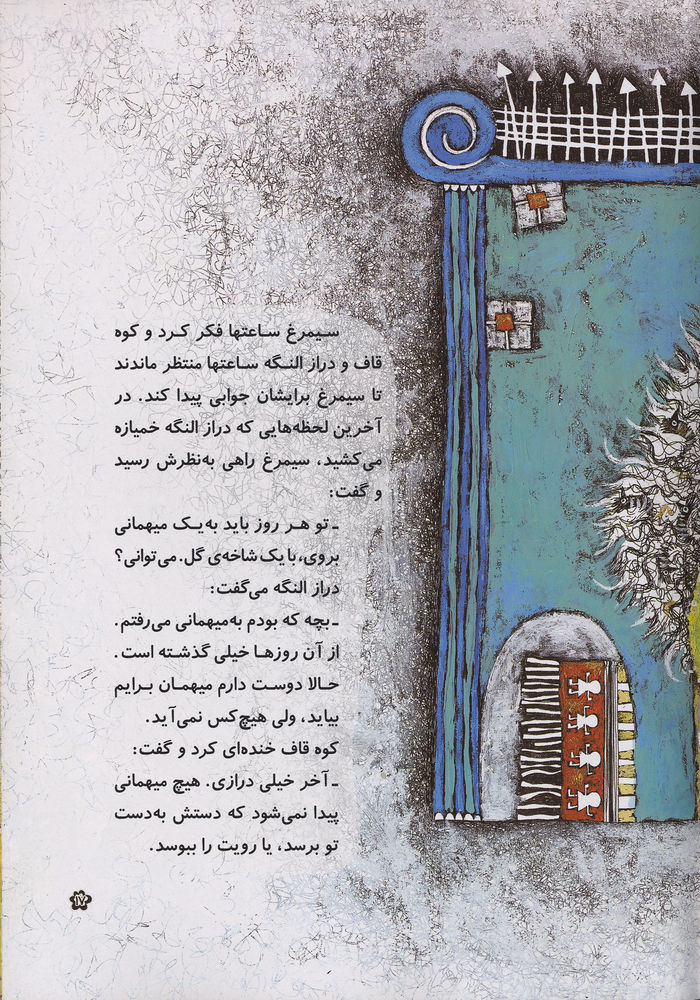 سیمرغ ساعتها فکر کرد و کوه
قاف و دراز النگه ساعتها منتظر ماندند
تا سیمرغ برایشان جوابی پیدا کند. در
آخرین لحظه‌هایی که دراز النگه خمیازه
می‌کشید، سیمرغ راهی به‌نظرش رسید
و گفت:
ـ تو هر روز باید به‌یک میهمانی
بروی، با یک شاخه‌ی گل. می‌توانی؟
دراز النگه می‌گفت:
ـ بچه که بودم به‌میهمانی می‌رفتم.
از آن روزها خیلی گذشته است.
حالا دوست دارم میهمان برایم
بیاید، ولی هیچ‌کس نمی‌آید.
کوه قاف خنده‌ای کرد و گفت:
ـ آخر خیلی درازی. هیچ میهمانی
پیدا نمی‌شود که دستش به‌دست
تو برسد، یا رویت را ببوسد.
۱۷